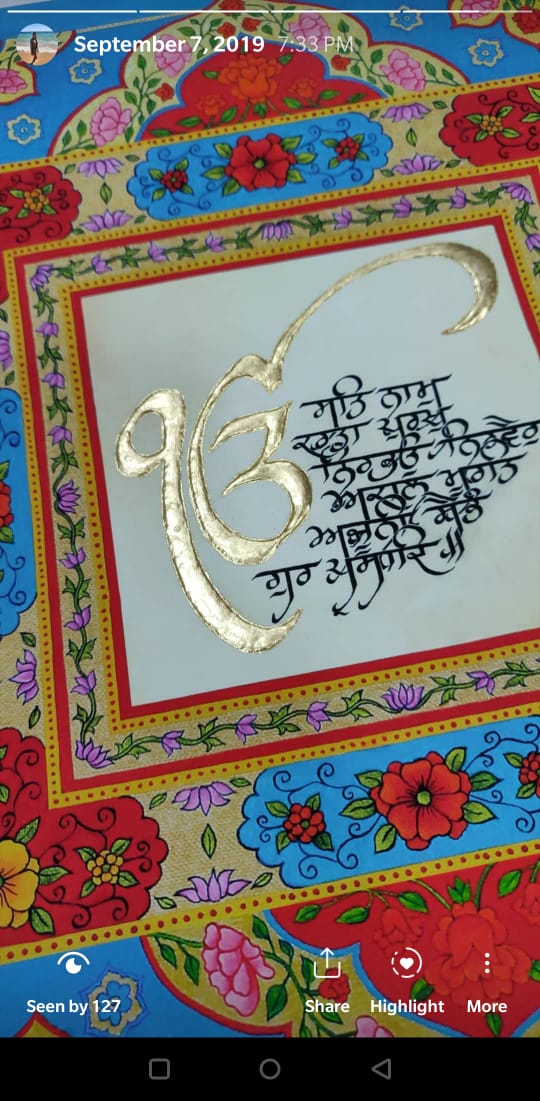 September 7, 2019 7:33 PM
ੴ
ਸਤਿ ਨਾਮ
ਕਰਤਾ ਪੁਰਖੁ
ਨਿਰਭਉ ਨਿਰਵੈਰ
ਅਕਾਲ ਮੂਰਤਿ
ਅਜੂਨੀ ਸੈਭੰ
ਗੁਰ ਪ੍ਰਸਾਦਿ॥
Seen by 127 Share Highlight More